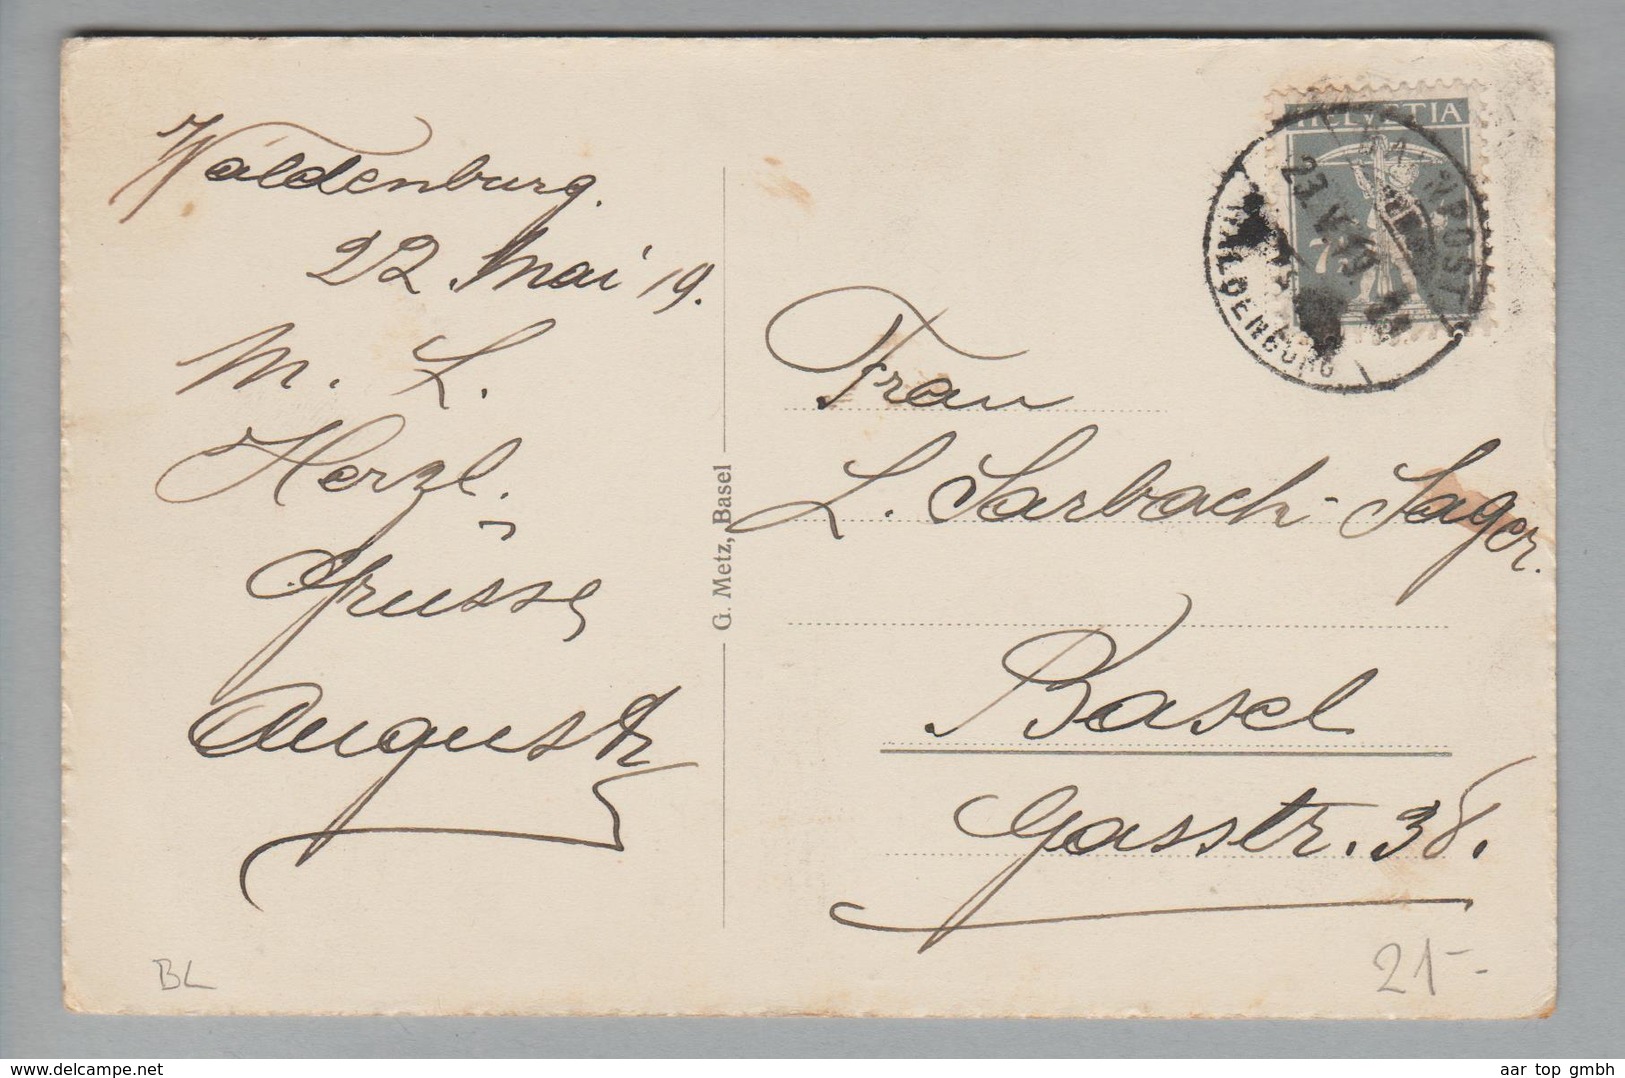 Waldenburg.
22. Mai 19.
M. L.
Herzl.
Grüsse
August
G. Metz, Basel
HELVETIA
7½
23.V.19
WALDENBURG
Frau
L. Sarbach-Sager.
Basel
Gasstr. 38.
BL
21-
aar-collection.com
aar top gmbh